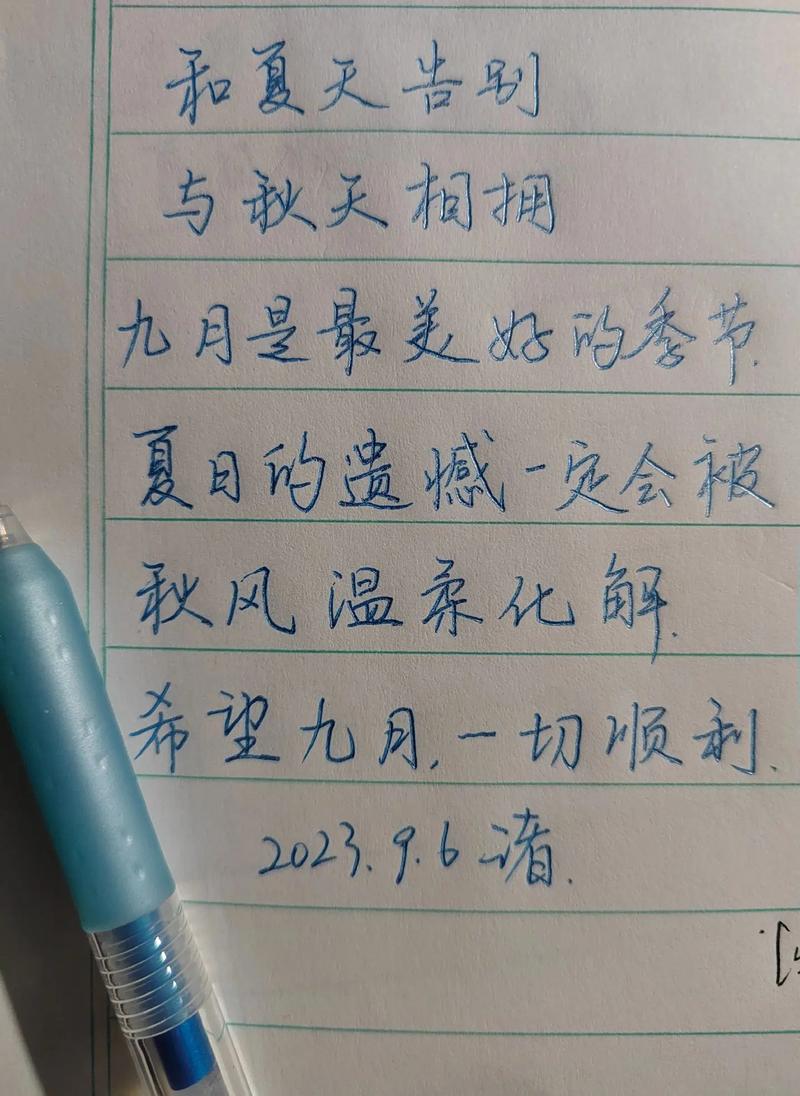 和夏天告别
与秋天相拥
九月是最美好的季节.
夏日的遗憾一定会被
秋风温柔化解.
希望九月,一切顺利.
2023.9.6